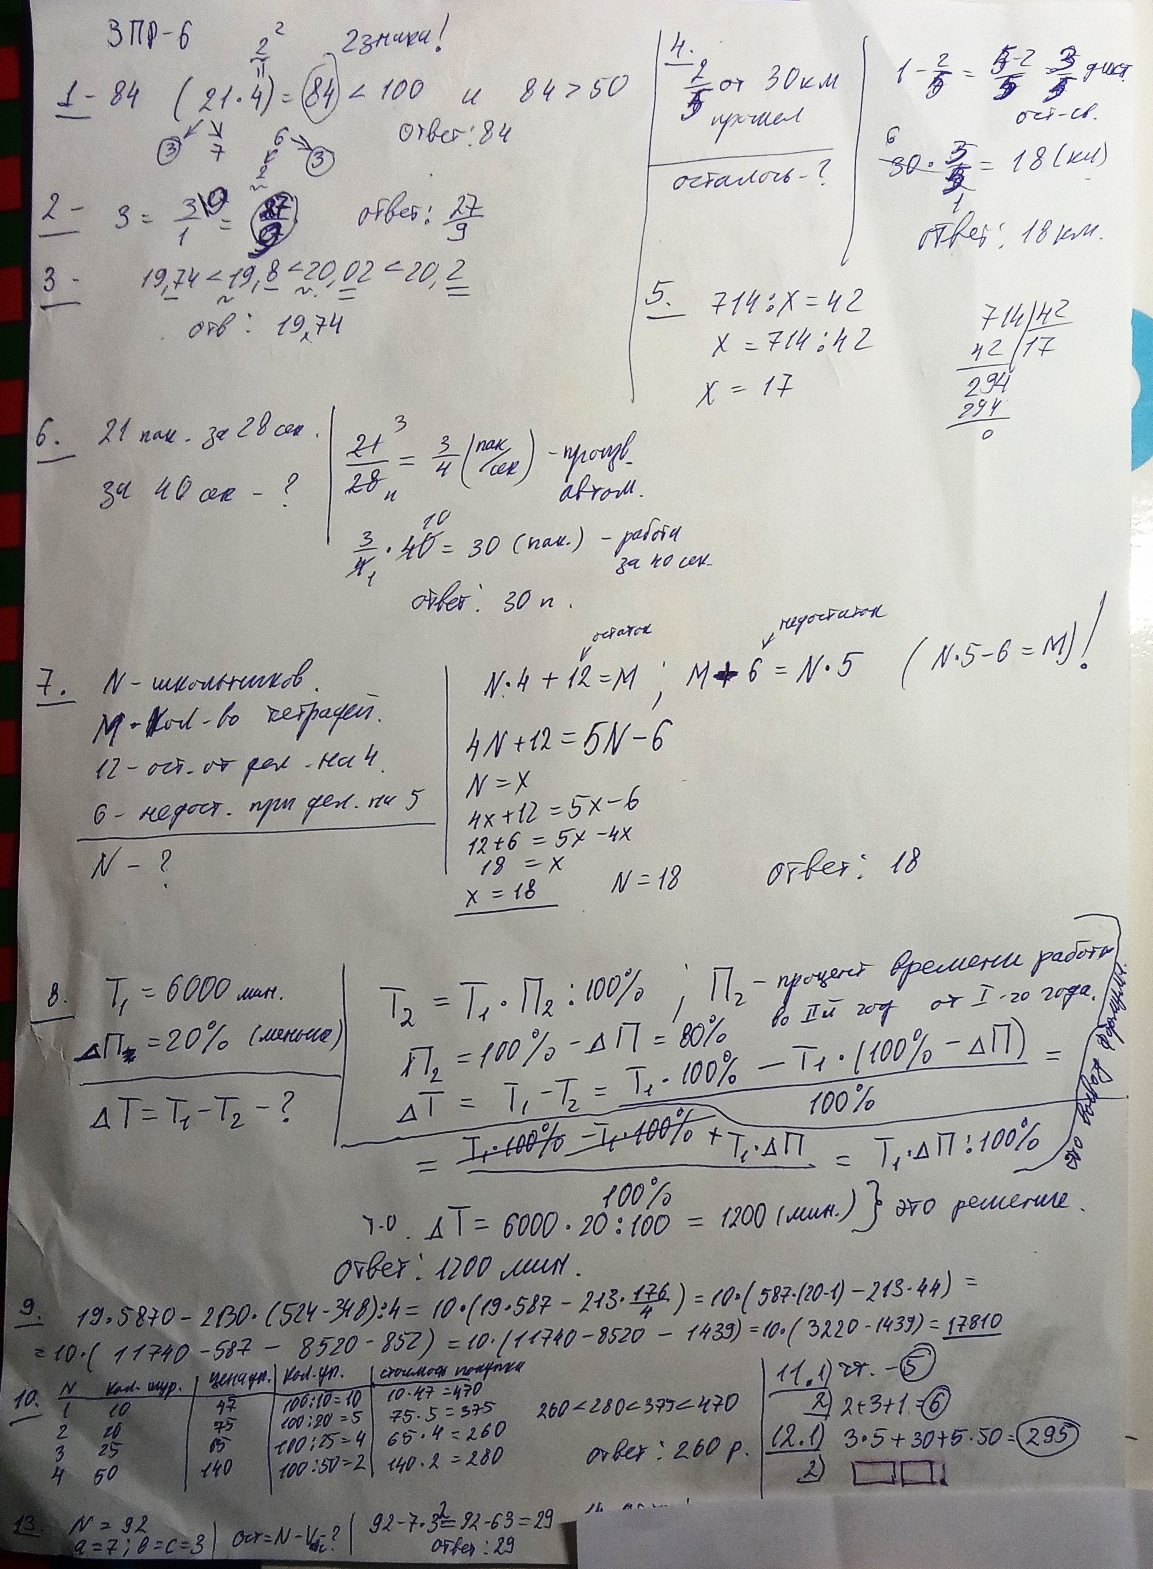 ЗПР-6
2 знака!
1 - 84 (21·4) = 84 < 100 и 84 > 50
3 7 6 3
2
ответ: 84
2 - 3 = 3/1 = 27/9 ответ: 27/9
3 - 19,74 < 19,8 < 20,02 < 20,2
отв: 19,74
4. 2/5 от 30 км
прошел
осталось - ?
1 - 2/5 = 5-2/5 = 3/5 дист.
ост-св.
30 · 3/5 = 18 (км)
ответ: 18 км.
5. 714 : x = 42
x = 714 : 42
x = 17
714 | 42
42 | 17
294
294
0
6. 21 пак. за 28 сек.
за 40 сек - ?
21/28 = 3/4 (пак/сек) - произв.
автом.
3/4 · 40 = 30 (пак.) - работа
за 40 сек.
ответ: 30 п.
7. N - школьников.
M - кол-во тетрадей.
12 - ост. от дел. на 4.
6 - недост. при дел. на 5
N - ?
остаток недостаток
N·4 + 12 = M ; M + 6 = N·5 (N·5 - 6 = M)!
4N + 12 = 5N - 6
N = x
4x + 12 = 5x - 6
12 + 6 = 5x - 4x
18 = x
x = 18 N = 18 ответ: 18
8. T₁ = 6000 мин.
ΔП = 20% (меньше)
ΔT = T₁ - T₂ - ?
T₂ = T₁ · П₂ : 100% ; П₂ - процент времени работы
во IIй год от I-го года.
П₂ = 100% - ΔП = 80%
ΔT = T₁ - T₂ = T₁·100% - T₁·(100% - ΔП) / 100% =
= T₁·100% - T₁·100% + T₁·ΔП / 100% = T₁·ΔП : 100%
это вывод формулы.
т.о. ΔT = 6000·20:100 = 1200 (мин.) } это решение.
ответ: 1200 мин.
9. 19·5870 - 2130·(524-348):4 = 10·(19·587 - 213·176/4) = 10·(587·(20-1) - 213·44) =
= 10·(11740 - 587 - 8520 - 852) = 10·(11740 - 8520 - 1439) = 10·(3220 - 1439) = 17810
10. N кол. шур. цена уп. кол. уп. стоимость покупки
1 10 47 100:10=10 10·47=470
2 20 75 100:20=5 75·5=375
3 25 65 100:25=4 65·4=260
4 50 140 100:50=2 140·2=280
260 < 280 < 375 < 470
ответ: 260 р.
11. 1) чт. - 5
2) 2+3+1=6
12. 1) 3·5+30+5·50=295
2)
13. N = 92
a=7; b=c=3
Ост=N-V-?
92-7·3²=92-63=29
ответ: 29